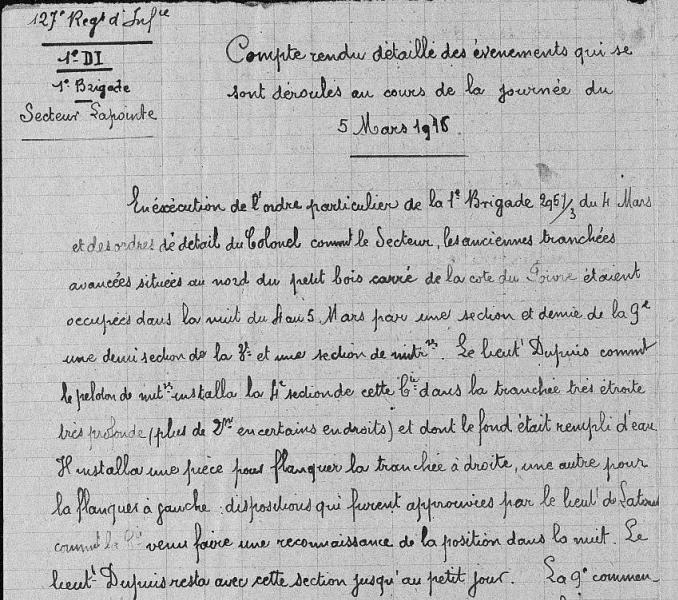 127e Regt d'Infie
1e DI
1e Brigade
Secteur Lapointe
Compte rendu détaillé des évenements qui se
sont déroulés au cours de la journée du
5 Mars 1916.
En éxécution de l'ordre particulier de la 1e Brigade 2961/3 du 4 Mars
et des ordres de détail du Colonel commt le Secteur, les anciennes tranchées
avancées situées au nord du petit bois carré de la cote du Poivre étaient
occupées dans la nuit du 4 au 5 Mars par une section et demie de la 9e
une demi section de la et une section de mitrses. Le lieutt Dupuis commt
le peloton de mitses installa la 4e section de cette Cie dans la tranchée très étroite
très profonde (plus de 2m en certains endroits) et dont le fond était rempli d'eau
Il installa une pièce pour flanquer la tranchée à droite, une autre pour
la flanquer à gauche : dispositions qui furent approuvées par le lieutt de
commt la Cie venu faire une reconnaissance de la position dans la nuit. Le
lieutt Dupuis resta avec cette section jusqu'au petit jour. La 9e commen-